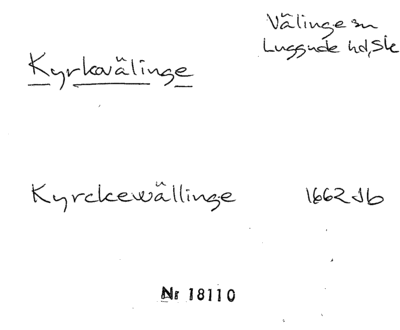 Välinge sn
Luggude hd, Sk
Kyrkovälinge
Kyrckewällinge 1662 Jb
Nr 18110